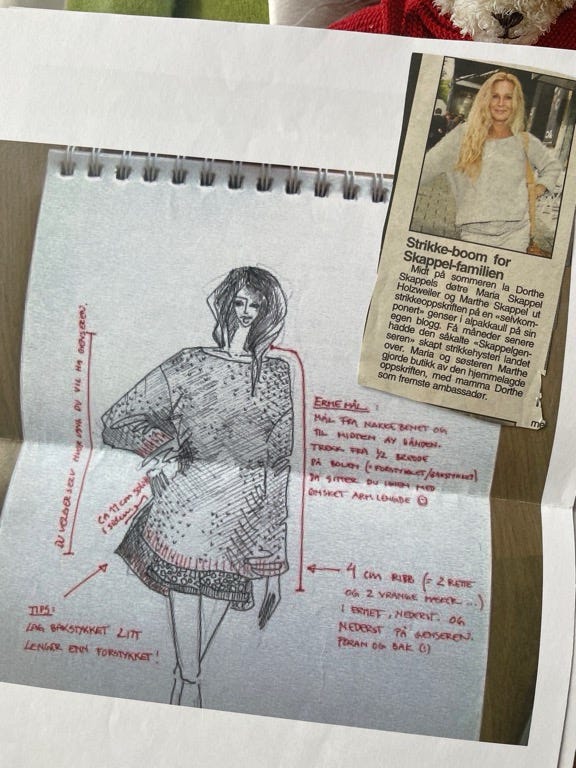 Strikke-boom for
Skappel-familien
Midt på sommeren la Dorthe
Skappels døtre Maria Skappel
Holzweiler og Marthe Skappel ut
strikkeoppskriften på en «selvkom-
ponert» genser i alpakkaull på sin
egen blogg. Få måneder senere
hadde den såkalte «Skappelgen-
seren» skapt strikkehysteri landet
over. Maria og søsteren Marthe
gjorde butikk av den hjemmelagde
oppskriften, med mamma Dorthe
som fremste ambassadør.
me
DU VELGER SELV HVOR VIDA DU VIL HA GENSEREN.
ERMEMÅL:
MÅL FRA NAKKEBENET OG
TIL MIDTEN AV HÅNDEN.
TREKK FRA 1/2 BREDDE
PÅ BOLEN (=FORSTYKKET/BAKSTYKKET)
DA SITTER DU IGJEN MED
ØNSKET ARMLENGDE ☺
CA 11 CM SPLITT
I SIDEN
4 CM RIBB (= 2 RETTE
OG 2 VRANGE MASKER...)
I ERMET, NEDERST. OG
NEDERST PÅ GENSEREN.
FORAN OG BAK (!)
TIPS:
LAG BAKSTYKKET LITT
LENGER ENN FORSTYKKET!